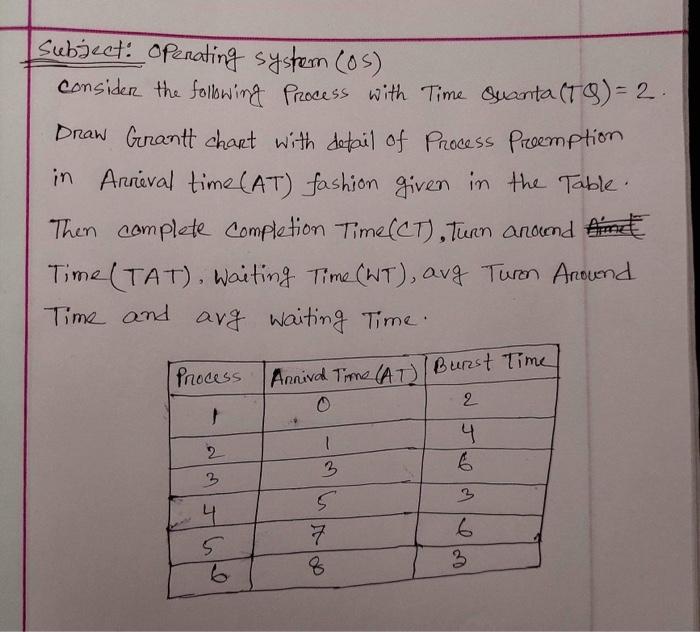 Subject: Operating system (OS)
Consider the following Process with Time Quanta (TQ) = 2.
Draw Grantt chart with detail of Process Preemption
in Arrival time (AT) fashion given in the Table.
Then complete Completion Time (CT), Turn around
Time (TAT), Waiting Time (WT), avg Turn Around
Time and avg Waiting Time.
Process Arrival Time (AT) Burst Time
1 0 2
2 1 4
3 3 6
4 5 3
5 7 6
6 8 3